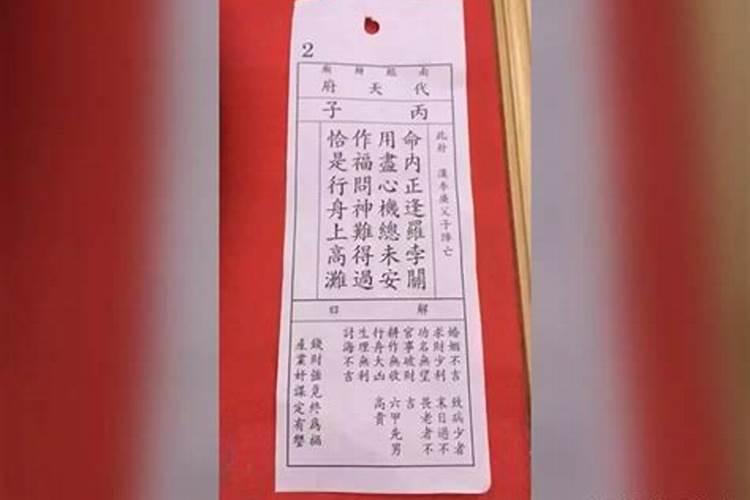 2
南鯤鯓廟
代天府
丙子
此籤 漢李廣父子陣亡
命內正逢羅孛關
用盡心機總未安
作福問神難得過
恰是行舟上高灘
解曰
婚姻不吉 致病少者
求財少利 末日過不
功名無望 畏老者不
官事破財 吉
耕作無收 六甲先男
行舟大凶 高貴
生理無利
討海不吉
錢財強覓終為禍
產業奸謀定有壟